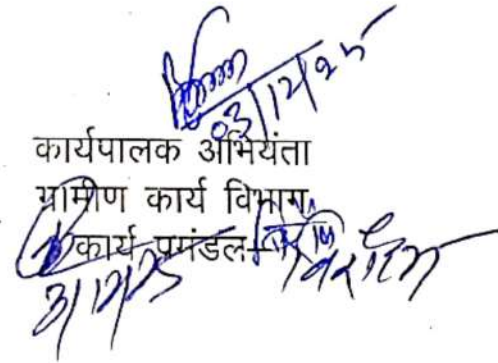 03/12/25
कार्यपालक अभियंता
ग्रामीण कार्य विभाग,
कार्य प्रमंडल–
3/12/25